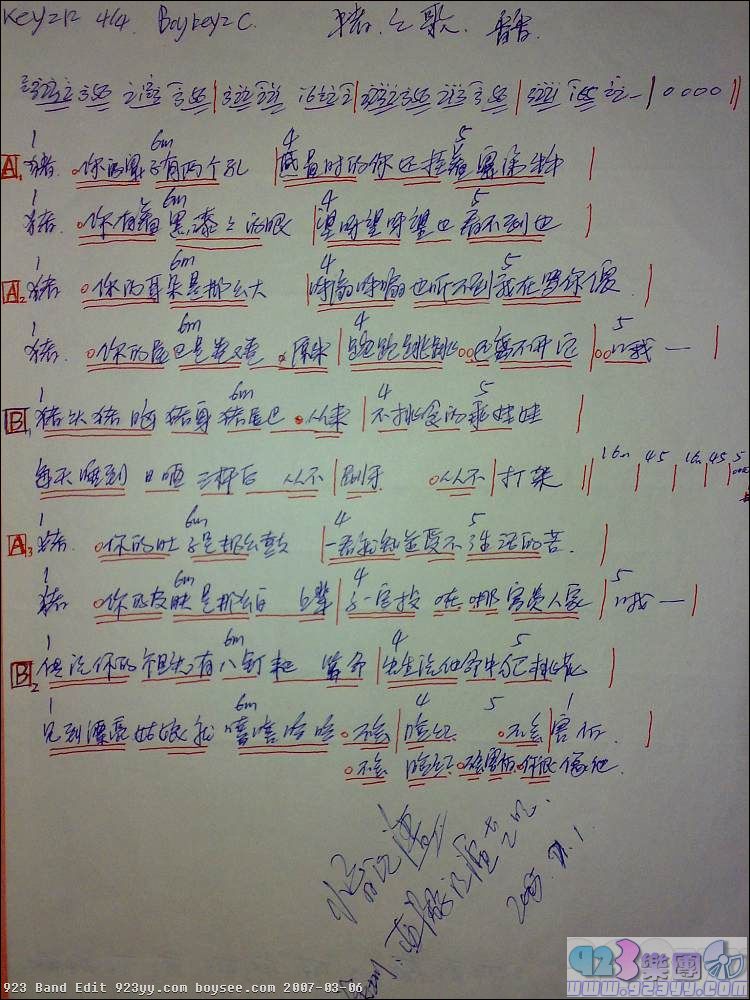 4/4 Boykey=C. 猪之歌. 香香.
0000
1 6m 4 5
A1 猪 你的鼻子有两个孔 感冒时的你还挂着鼻涕牛牛
1 6m 4 5
猪 你有着黑漆々的眼 望呀望呀望也看不到边
1 6m 4 5
A2 猪 你的耳朵是那么大 呼扇呼扇也听不到我在骂你傻
1 6m 4 5
猪 你的尾巴是卷又卷 原来 跑跑跳跳 还离不开它
1 6m 4 5
B1 猪头猪脑猪身猪尾巴 从来 不挑食的乖娃娃
每天睡到日晒三杆后 从不 刷牙 从不 打架
1 6m 4 5
A3 猪 你的肚子是那么鼓 一看就知道受不了生活的苦
1 6m 4 5
猪 你的皮肤是那么白 上辈 子一定投在那富贵人家
1 6m 4 5
B2 传说你的祖先有八钉耙 算命 先生说他命中犯桃花
1 6m 4 5 1
见到漂亮姑娘就嘻嘻哈哈 不会 脸红 不会 害怕
不会 脸红 不会害怕 你很像他
923 Band Edit 923yy.com boysee.com 2007-03-06
923樂團
www.923yy.com